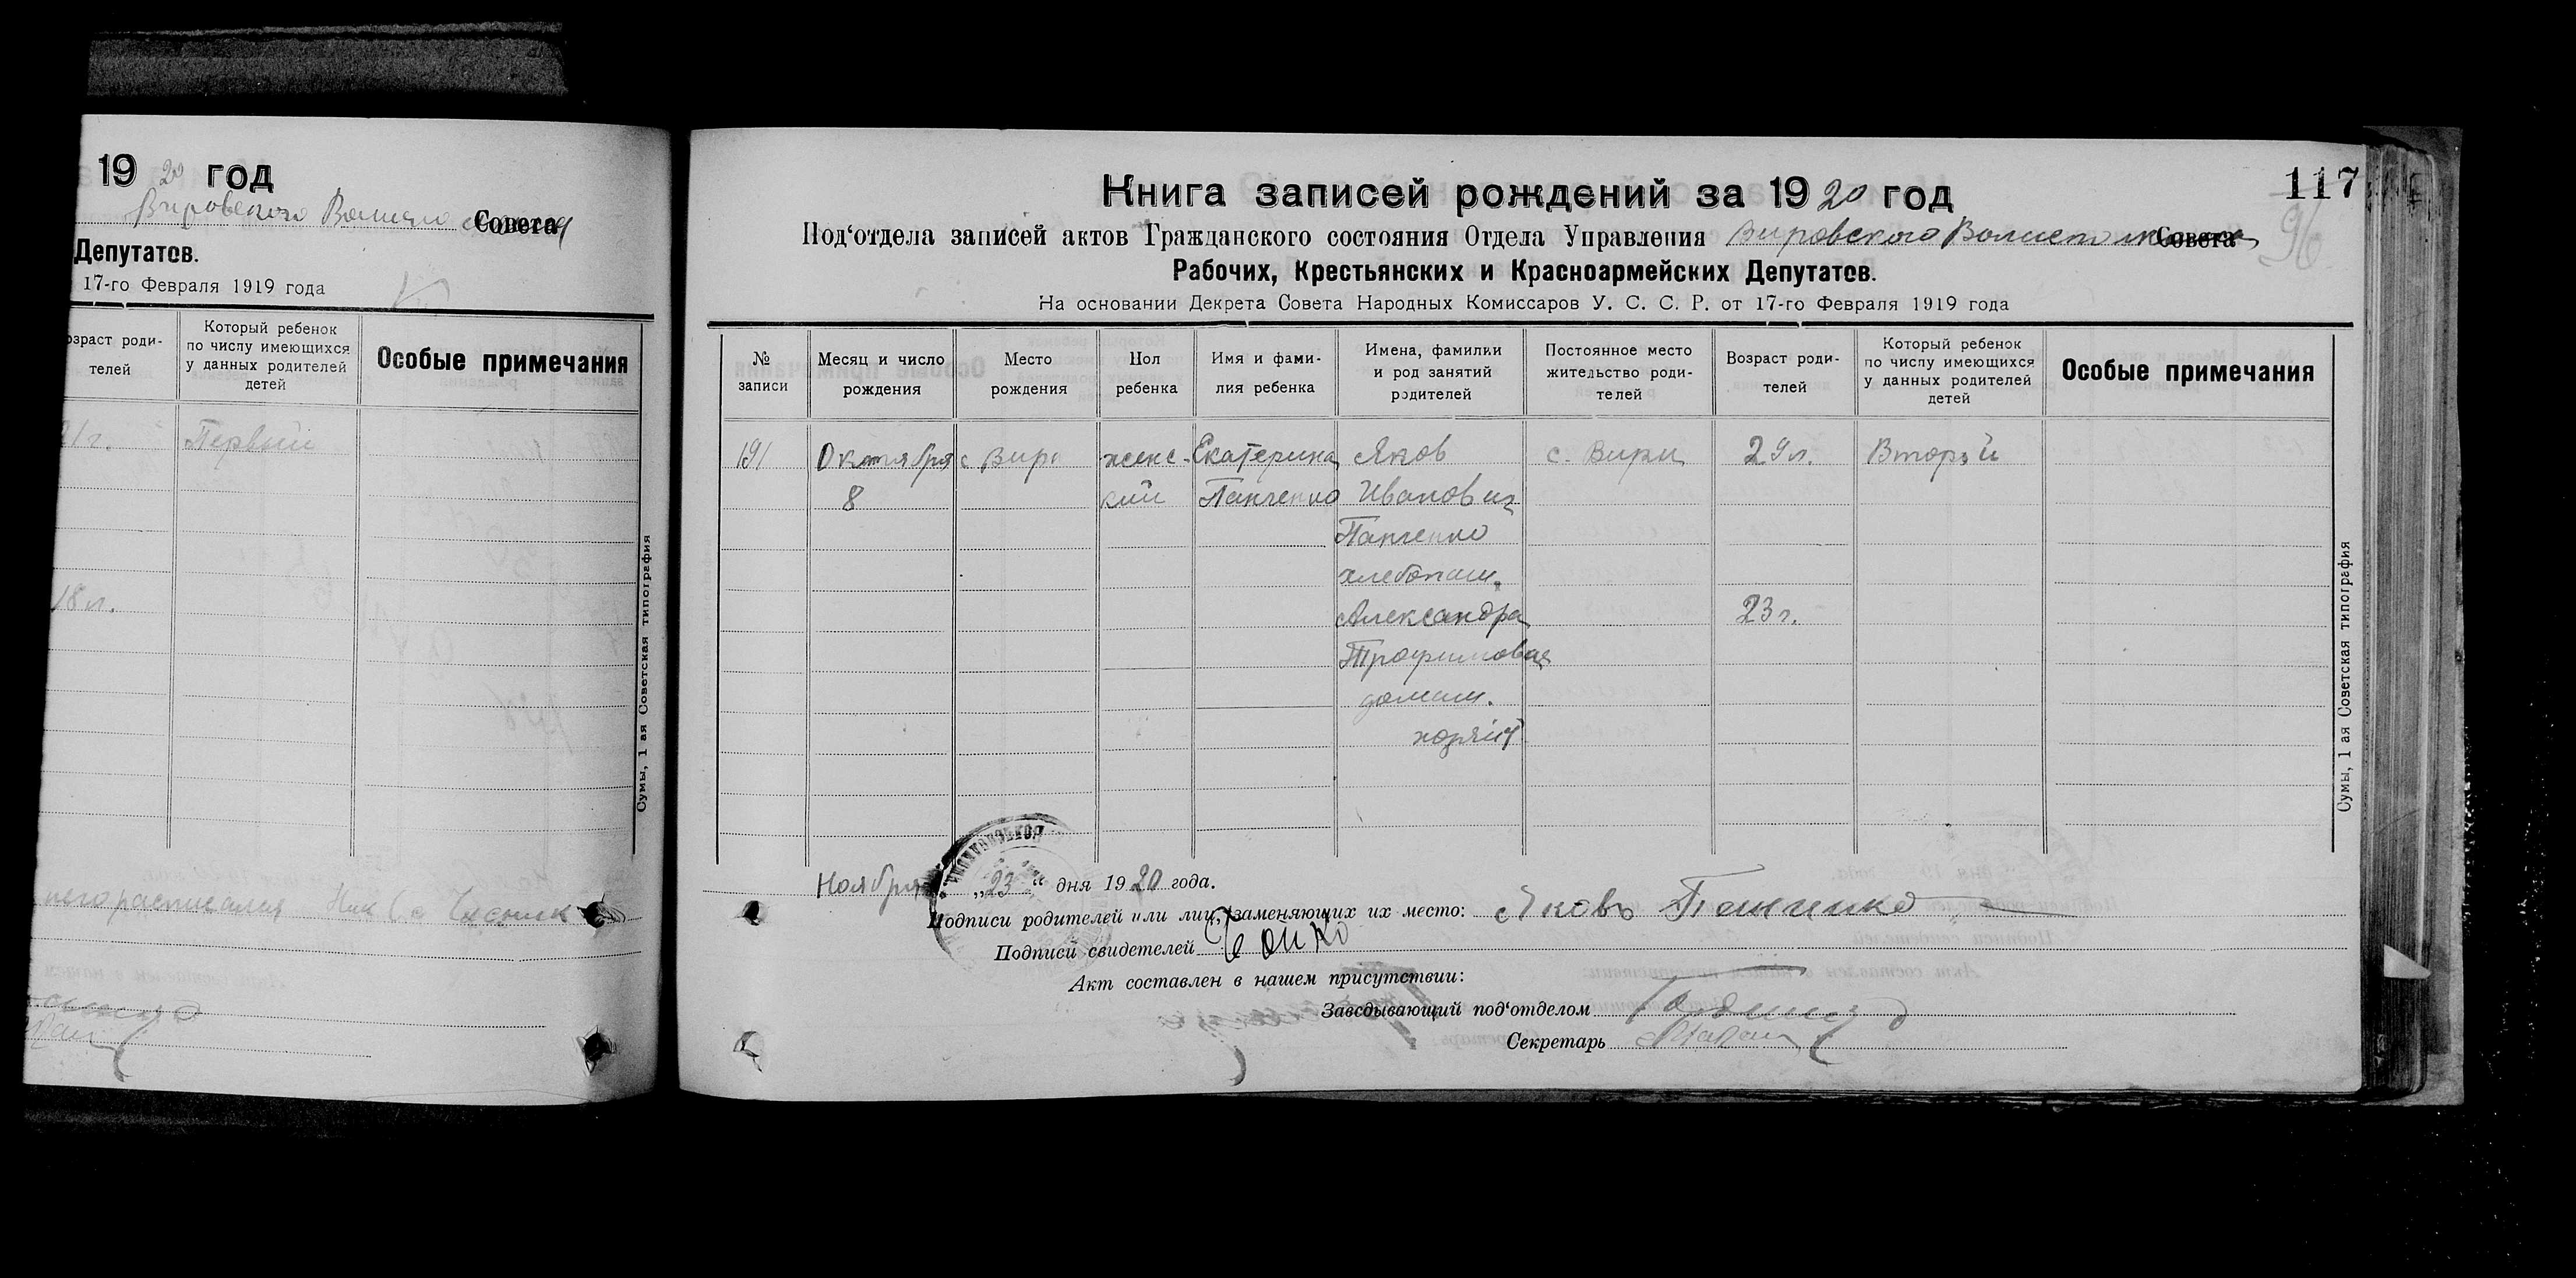 19 20 год
Вировского Совета
Депутатов.
17-го Февраля 1919 года
озраст роди-
телей
Который ребенок
по числу имеющихся
у данных родителей
детей
Особые примечания
21 г.
Первый
18 л.
Сумы, 1 ая Советская типография
117
96
Книга записей рождений за 19 20 год
Под‘отдела записей актов Гражданского состояния Отдела Управления Вировского Совета
Рабочих, Крестьянских и Красноармейских Депутатов.
На основании Декрета Совета Народных Комиссаров У. С. С. Р. от 17-го Февраля 1919 года
№
записи
Месяц и число
рождения
Место
рождения
Пол
ребенка
Имя и фами-
лия ребенка
Имена, фамилии
и род занятий
родителей
Постоянное место
жительство роди-
телей
Возраст роди-
телей
Который ребенок
по числу имеющихся
у данных родителей
детей
Особые примечания
191 Октября с Вири женс- Екатерина Яков с. Вири 29 л. Второй
8 кий Панченко Иванович
Панченко
хлебопаш.
Александра 23 г.
Трофимовая
домаш.
Ноября „23“ дня 19 20 года.
Подписи родителей или лиц, заменяющих их место: Яковъ Панченко
Подписи свидетелей
Акт составлен в нашем присутствии:
Заведывающий под‘отделом
Секретарь
Сумы, 1 ая Советская типография